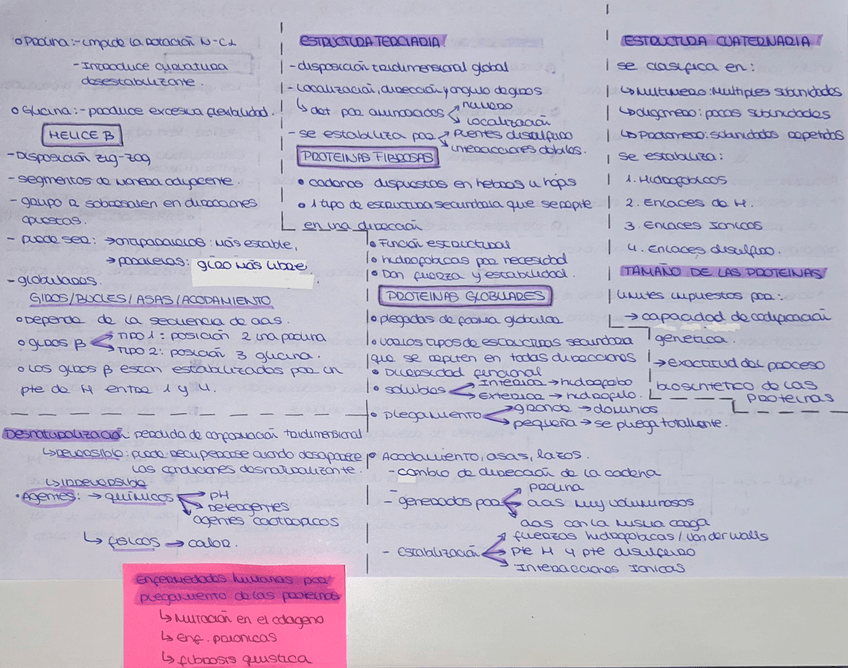 • Prolina: - impide la rotación N-Cα
- Introduce curvatura
desestabilizante
• Glicina: - produce excesiva flexibilidad.
HELICE B
- Disposición zig-zag
- segmentos de manera adyacente.
- grupo R sobresalen en direcciones
opuestas.
- puede ser: → antiparalelas: más estable,
→ paralelas: giro más libre
- globulares.
GIROS/BUCLES/ASAS/ACODAMIENTO
• Depende de la secuencia de aas.
• giros β
TIPO 1: posición 2 una prolina
TIPO 2: posición 3 glicina.
• Los giros β están estabilizados por un
pte de H entre 1 y 4.
Desnaturalización: perdida de conformación tridimensional
↳ Reversible: puede recuperarse cuando desaparece
las condiciones desnaturalizante.
↳ Irreversible
• Agentes: → químicos
PH
Detergentes
agentes caotropicos
↳ físicos → calor.
Enfermedades humanas por
plegamiento de las proteinas
↳ Mutación en el colageno
↳ Enf. prionicas
↳ fibrosis quistica
ESTRUCTURA TERCIARIA
- disposición tridimensional global
- Localización, dirección y angulo de giros
↳ det por aminoacidos
número
localización
- se estabiliza por
puentes disulfuro
interacciones debiles.
PROTEINAS FIBROSAS
• cadenas dispuestas en hebras u hojas
• 1 tipo de estructura secundaria que se repite
en una dirección
• Función estructural
• hidrofobicas por necesidad
• Dan fuerza y estabilidad.
PROTEINAS GLOBULARES
• plegadas de forma globular
• varios tipos de estructuras secundaria
que se repiten en todas direcciones
• Diversidad funcional
• solubles
Interior → hidrofobo
Exterior → hidrofilo.
• plegamiento
grande → dominios
pequeña → se pliega totalmente.
• Acodamiento, asas, lazos.
- cambio de dirección de la cadena
- generados por
prolina
aas muy voluminosos
aas con la misma carga
- Estabilización
fuerzas hidrofobicas / Van der walls
pte H y pte disulfuro
Interacciones Ionicas
ESTRUCTURA CUATERNARIA
se clasifica en:
↳ Multimero: Multiples subunidades
↳ oligomero: pocas subunidades
↳ Protomero: subunidades repetidas
se estabiliza:
1. Hidrofobicos
2. Enlaces de H.
3. Enlaces Ionicos
4. Enlaces disulfuro.
TAMAÑO DE LAS PROTEINAS
Limites impuestos por:
→ capacidad de codificación
genetica.
→ exactitud del proceso
biosintetico de las
proteinas